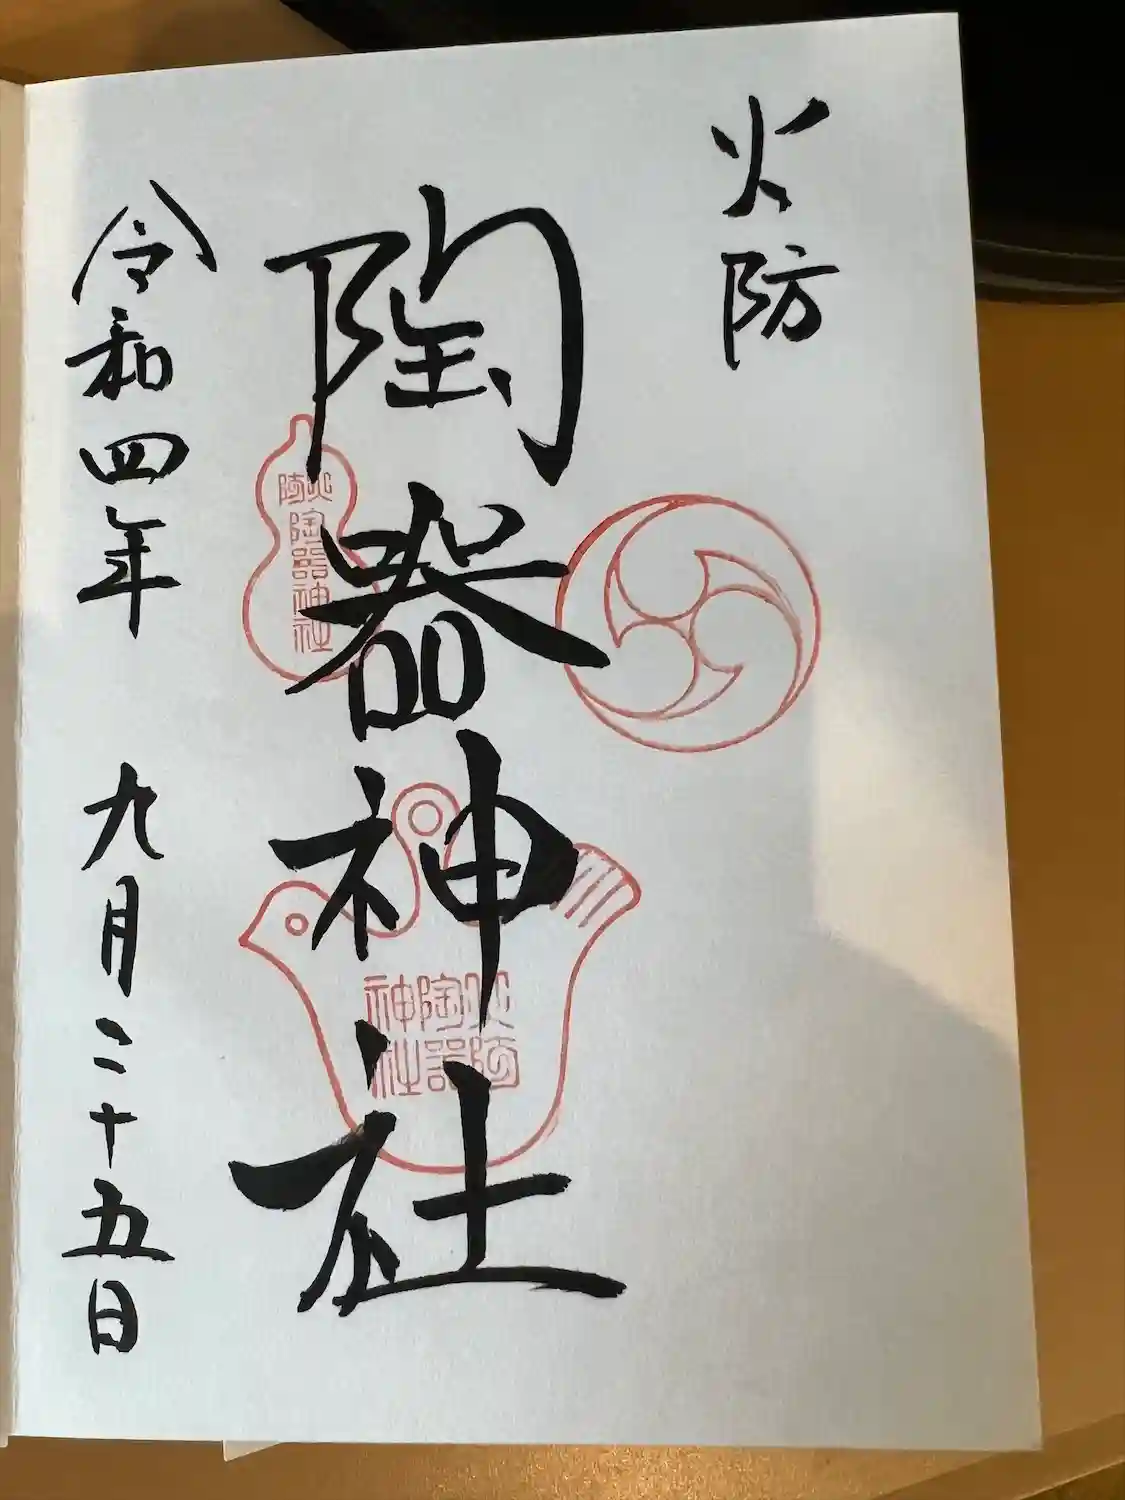 火防
陶器神社
令和四年 九月二十五日
火防
陶器神社
火防
陶器
神社